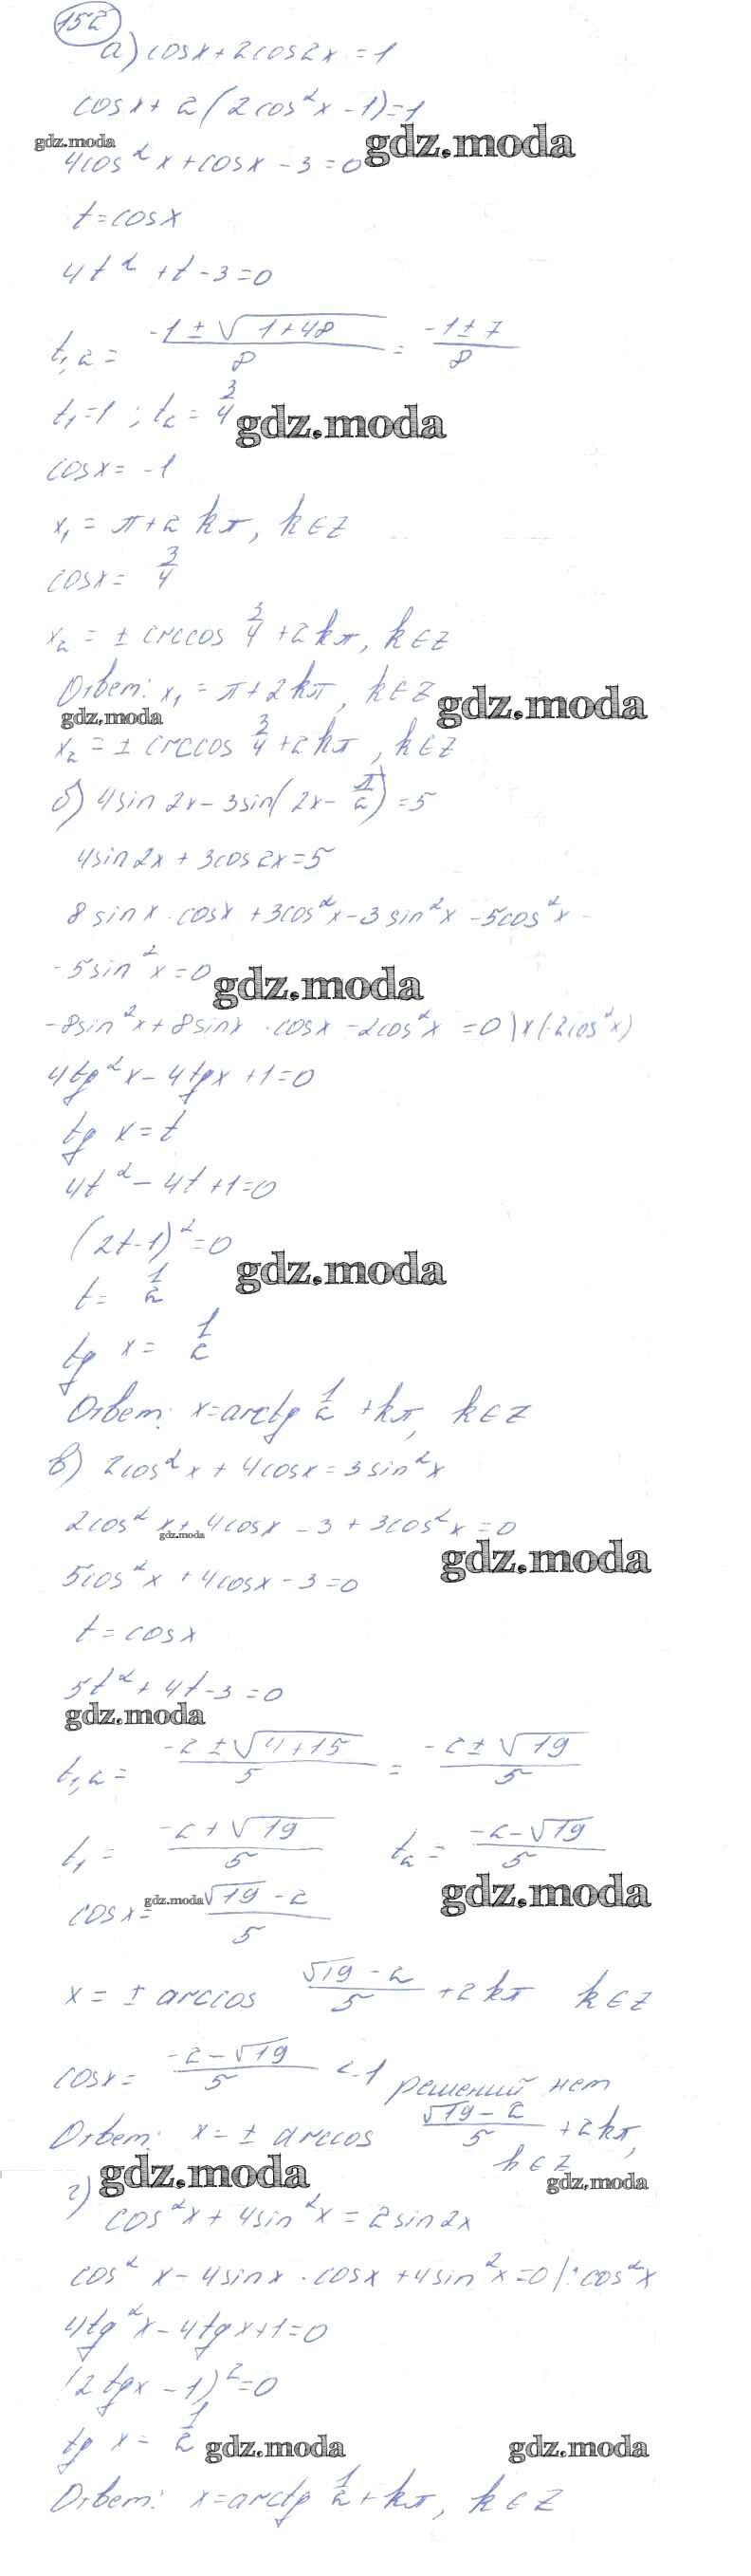 152
а) cosx+2cos2x=1
cosx+2(2cos²x-1)=1
gdz.moda gdz.moda
4cos²x+cosx-3=0
t=cosx
4t²+t-3=0
t₁,₂= (-1±√(1+48))/8 = (-1±7)/8
t₁=1; t₂= 3/4
gdz.moda
cosx=-1
x₁=π+2kπ, k∈Z
cosx= 3/4
x₂=±arccos 3/4 +2kπ, k∈Z
Ответ: x₁=π+2kπ, k∈Z
gdz.moda gdz.moda
x₂=±arccos 3/4 +2kπ, k∈Z
б) 4sin2x-3sin(2x- π/2)=5
4sin2x+3cos2x=5
8sinx·cosx+3cos²x-3sin²x-5cos²x-
-5sin²x=0
gdz.moda
-8sin²x+8sinx·cosx-2cos²x=0|×(-2cos²x)
4tg²x-4tgx+1=0
tg x=t
4t²-4t+1=0
(2t-1)²=0
gdz.moda
t= 1/2
tg x= 1/2
Ответ: x=arctg 1/2 +kπ, k∈Z
в) 2cos²x+4cosx=3sin²x
2cos²x+4cosx-3+3cos²x=0
gdz.moda gdz.moda
5cos²x+4cosx-3=0
t=cosx
5t²+4t-3=0
gdz.moda
t₁,₂= (-2±√(4+15))/5 = (-2±√19)/5
t₁= (-2+√19)/5 t₂= (-2-√19)/5
gdz.moda gdz.moda
cosx= (√19-2)/5
x=± arccos (√19-2)/5 +2kπ k∈Z
cosx= (-2-√19)/5 <-1 решений нет
Ответ: x=± arccos (√19-2)/5 +2kπ,
k∈Z
gdz.moda gdz.moda
г) cos²x+4sin²x=2sin2x
cos²x-4sinx·cosx+4sin²x=0|:cos²x
4tg²x-4tgx+1=0
(2tgx-1)²=0
tg x= 1/2
gdz.moda gdz.moda
Ответ: x=arctg 1/2 +kπ, k∈Z